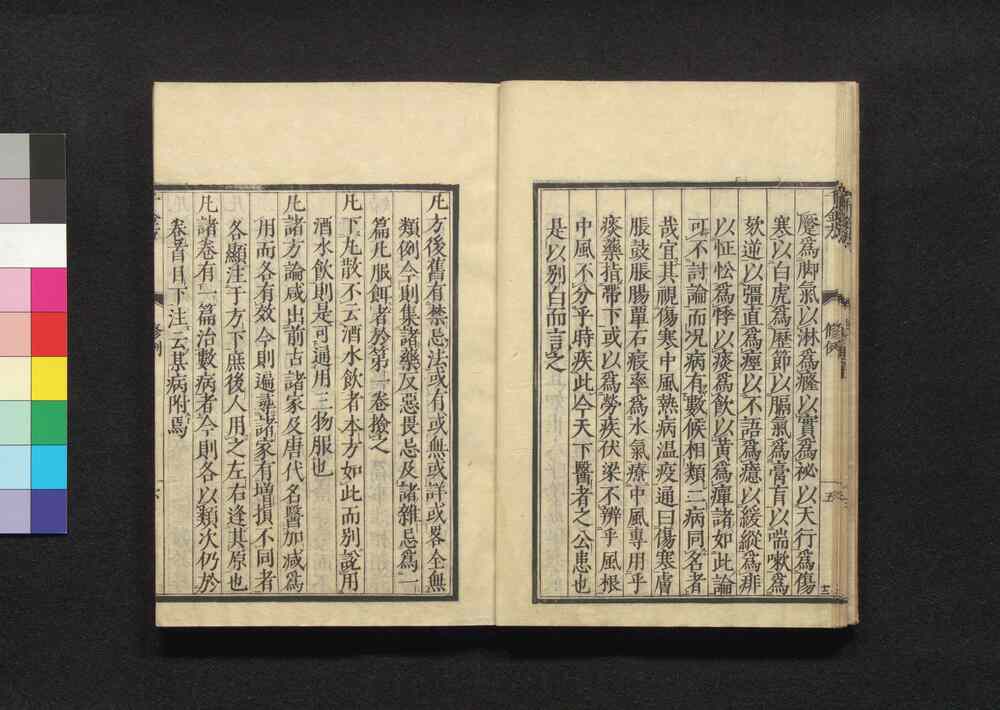 蹷為脚氣以淋為癃以實為祕以天行為傷
寒以白虎為歷節以膈氣為膏肓以喘嗽為
欬逆以彊直為痙以不語為癔以緩縱為痱
以怔忪為悸以痰為飲以黃為癉諸如此論
可不討論而况病有數候相類二病同名者
哉宜其視傷寒中風熱病温疫通曰傷寒膚
脹鼓脹腸覃石瘕率為水氣療中風專用乎
痰藥指帶下或以為勞疾伏梁不辨乎風根
中風不分乎時疾此今天下醫者之公患也
是以别白而言之
凡方後舊有禁忌法或有或無或詳或畧全無
類例今則集諸藥反惡畏忌及諸雜忌為一
篇凡服餌者於第一卷撿之
凡下丸散不云酒水飲者本方如此而别說用
酒水飲則是可通用三物服也
凡諸方論咸出前古諸家及唐代名醫加减為
用而各有效今則遍尋諸家有增損不同者
各顯注于方下庶後人用之左右逢其原也
凡諸卷有一篇治數病者今則各以類次仍於
卷首目下注云某病附焉